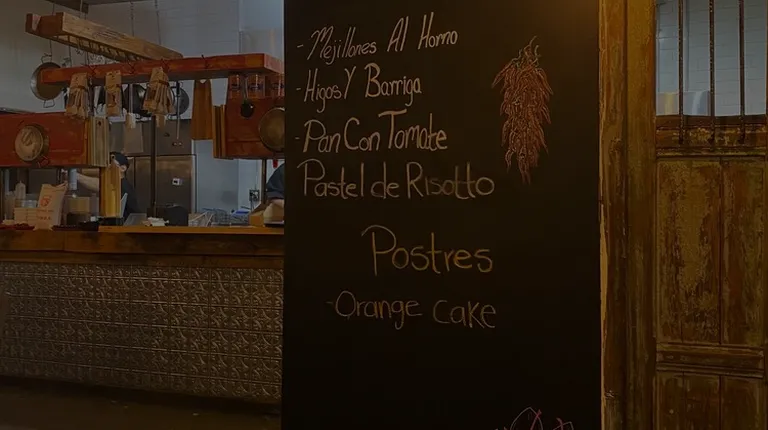 - Mejillones Al Horno
- Higos Y Barriga
- Pan Con Tomate
Pastel de Risotto
Postres
- Orange cake